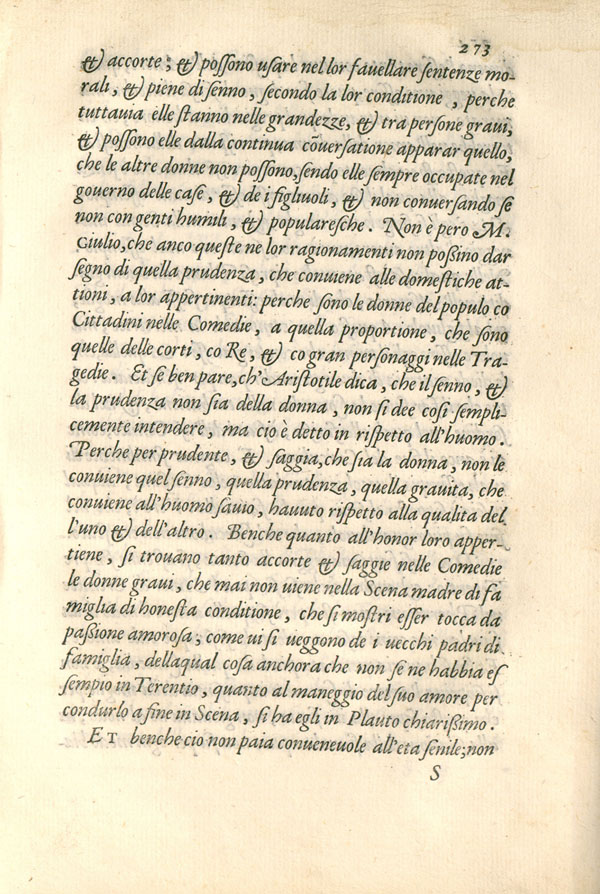 273
& accorte; & possono usare nel lor fauellare sentenze mo-
rali, & piene di senno, secondo la lor conditione, perche
tuttauia elle stanno nelle grandezze, & tra persone graui,
& possono elle dalla continua cōuersatione apparar quello,
che le altre donne non possono, sendo elle sempre occupate nel
gouerno delle case, & de i figliuoli, & non conuersando se
non con genti humili, & popularesche. Non è pero M.
Giulio, che anco queste ne lor ragionamenti non poßino dar
segno di quella prudenza, che conuiene alle domestiche at-
tioni, a lor appertinenti: perche sono le donne del populo co
Cittadini nelle Comedie, a quella proportione, che sono
quelle delle corti, co Re, & co gran personaggi nelle Tra-
gedie. Et se ben pare, ch'Aristotile dica, che il senno, &
la prudenza non sia della donna, non si dee cosi sempli-
cemente intendere, ma cio è detto in rispetto all'huomo.
Perche per prudente, & saggia, che sia la donna, non le
conuiene quel senno, quella prudenza, quella grauita, che
conuiene all'huomo sauio, hauuto rispetto alla qualita del
l'uno & dell'altro. Benche quanto all'honor loro apper-
tiene, si trouano tanto accorte & saggie nelle Comedie
le donne graui, che mai non uiene nella Scena madre di fa
miglia di honesta conditione, che si mostri esser tocca da
paßione amorosa; come ui si ueggono de i uecchi padri di
famiglia, dellaqual cosa anchora che non se ne habbia es
sempio in Terentio, quanto al maneggio del suo amore per
condurlo a fine in Scena, si ha egli in Plauto chiarißimo.
ET benche cio non paia conueneuole all'eta senile; non
S